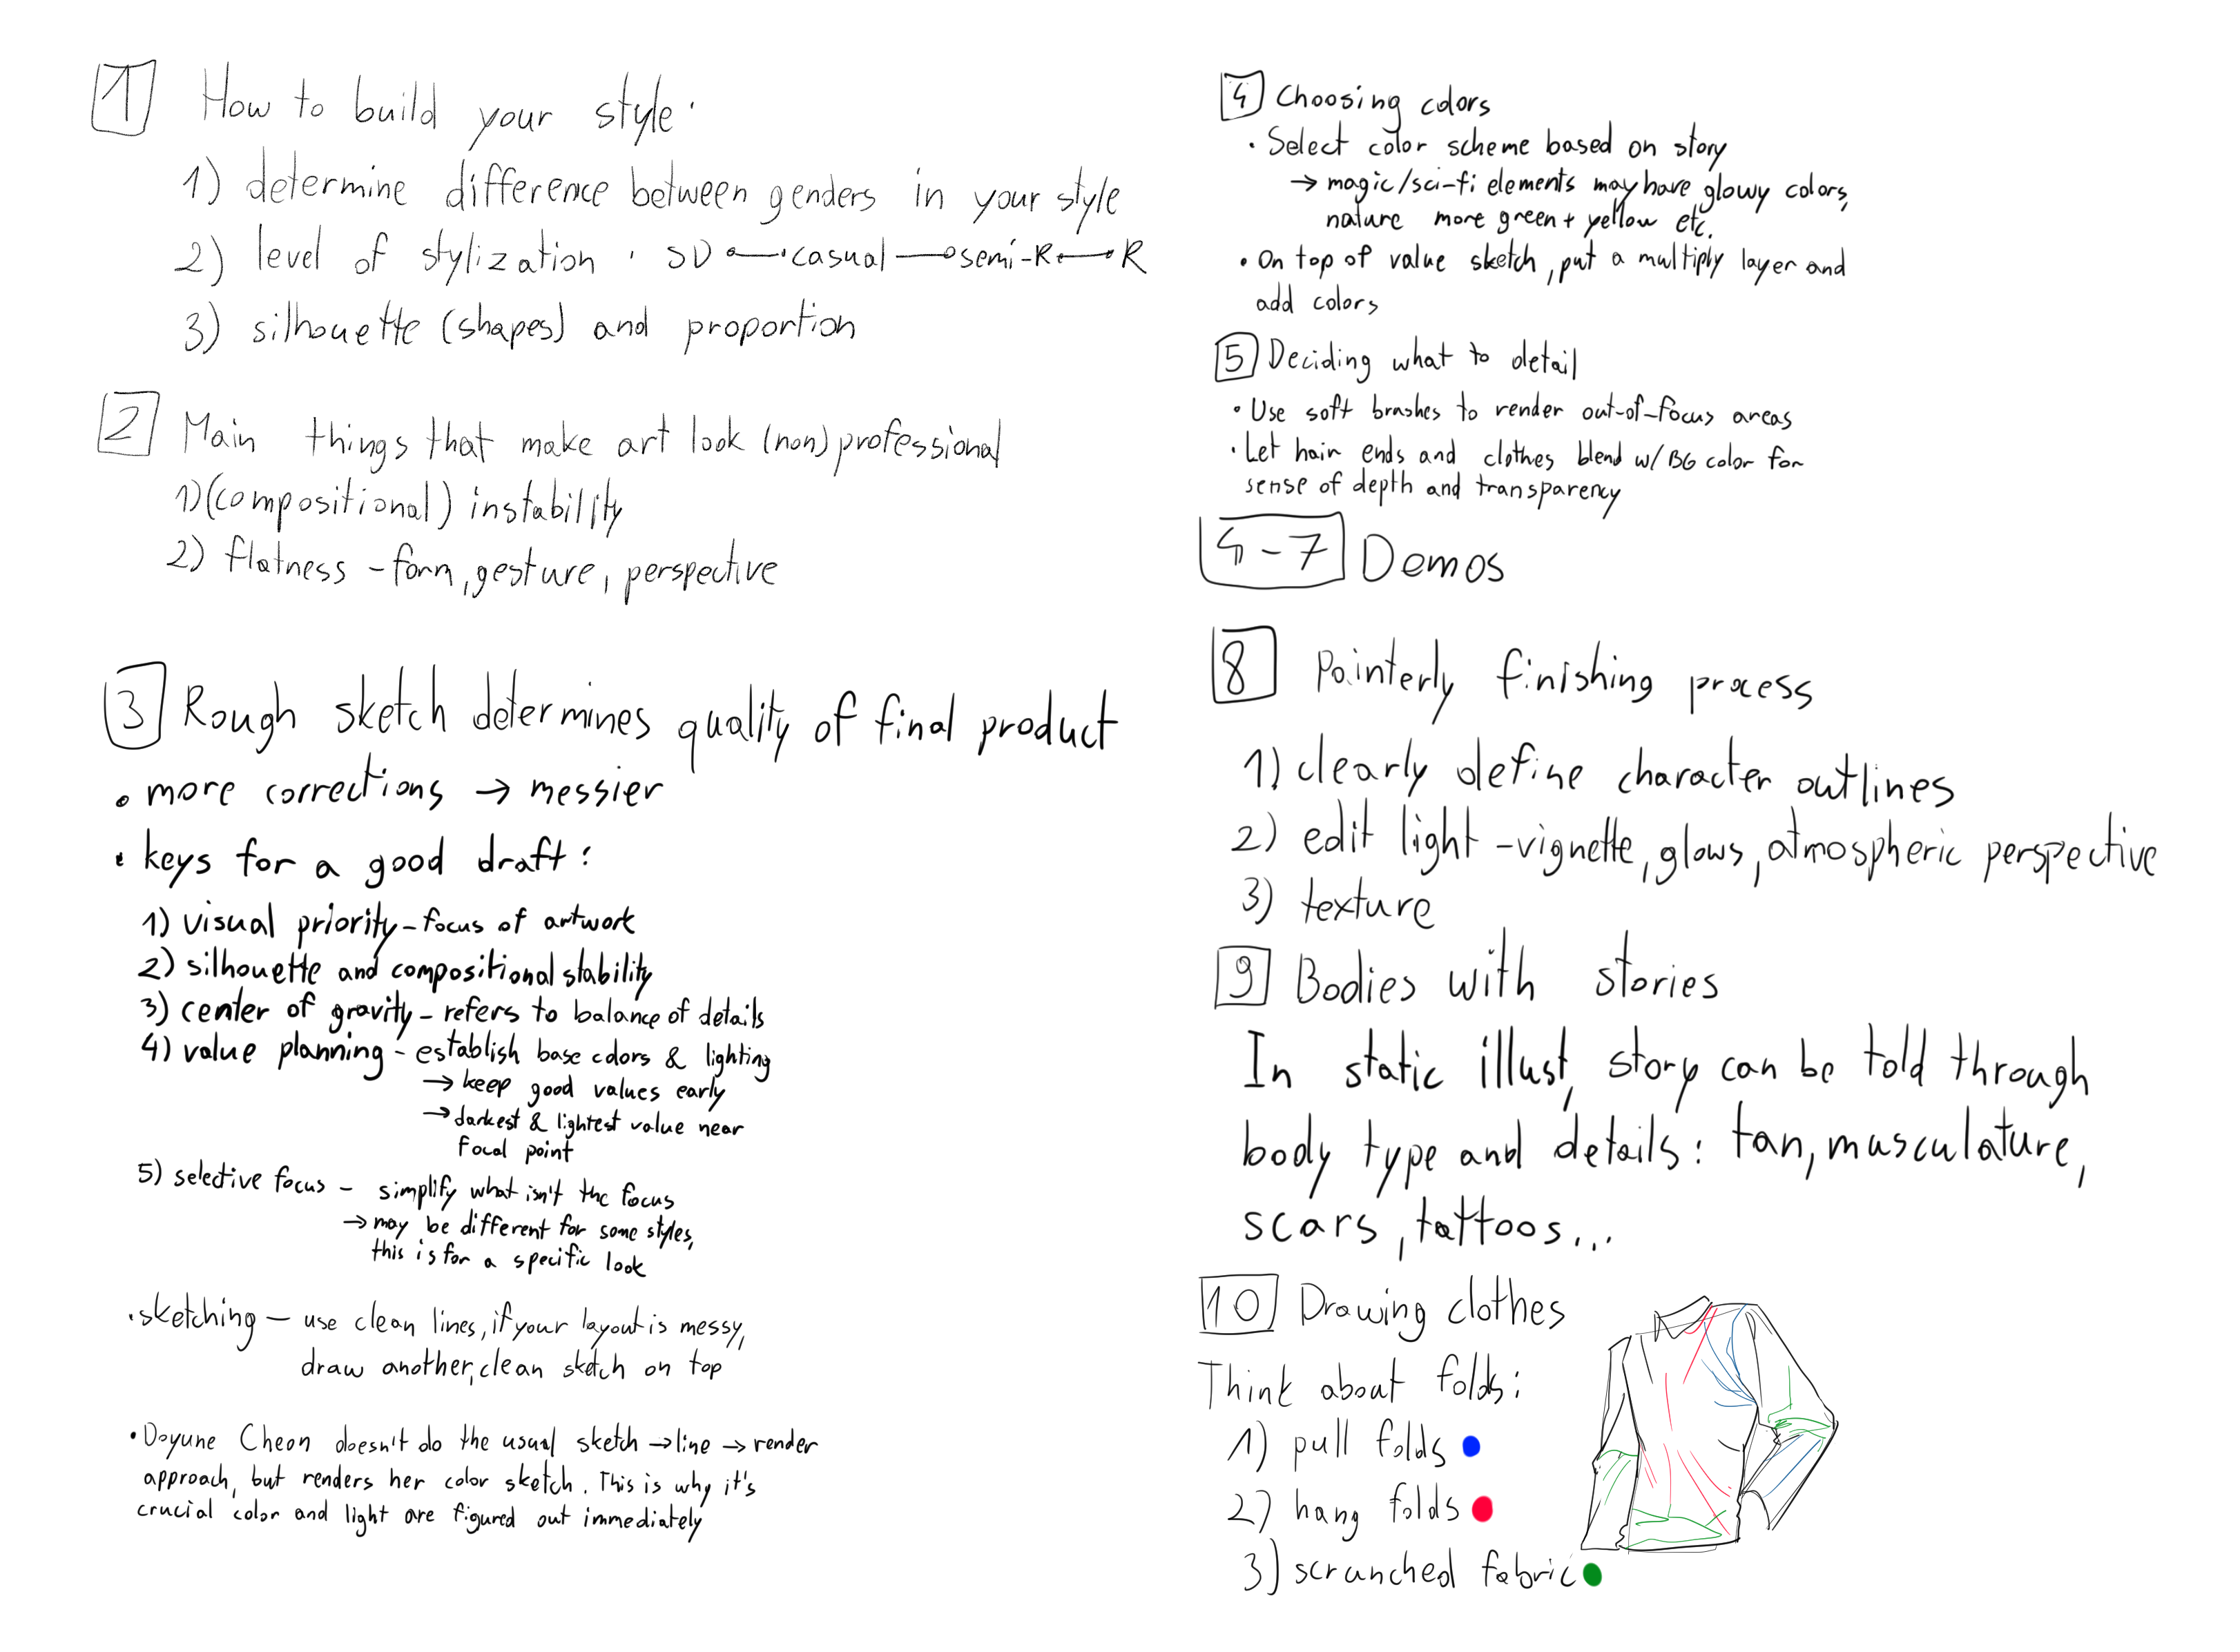 1 How to build your style:
1) determine difference between genders in your style
2) level of stylization · SD ←→ casual → semi-R ←→ R
3) silhouette (shapes) and proportion
2 Main things that make art look (non) professional
1) (compositional) instability
2) flatness - form, gesture, perspective
3 Rough sketch determines quality of final product
• more corrections → messier
• keys for a good draft:
1) visual priority - focus of artwork
2) silhouette and compositional stability
3) center of gravity - refers to balance of details
4) value planning - establish base colors & lighting
→ keep good values early
→ darkest & lightest value near
focal point
5) selective focus - simplify what isn't the focus
→ may be different for some styles,
this is for a specific look
• sketching - use clean lines, if your layout is messy,
draw another, clean sketch on top
• Doyune Cheon doesn't do the usual sketch → line → render
approach, but renders her color sketch. This is why it's
crucial color and light are figured out immediately
4 Choosing colors
• Select color scheme based on story
→ magic/sci-fi elements may have glowy colors,
nature more green + yellow etc.
• On top of value sketch, put a multiply layer and
add colors
5 Deciding what to detail
• Use soft brashes to render out-of-focus areas
• Let hair ends and clothes blend w/ BG color for
sense of depth and transparency
4-7 Demos
8 Painterly finishing process
1) clearly define character outlines
2) edit light - vignette, glows, atmospheric perspective
3) texture
9 Bodies with stories
In static illust, story can be told through
body type and details: tan, musculature,
scars, tattoos...
10 Drawing clothes
Think about folds:
1) pull folds
2) hang folds
3) scrunched fabric